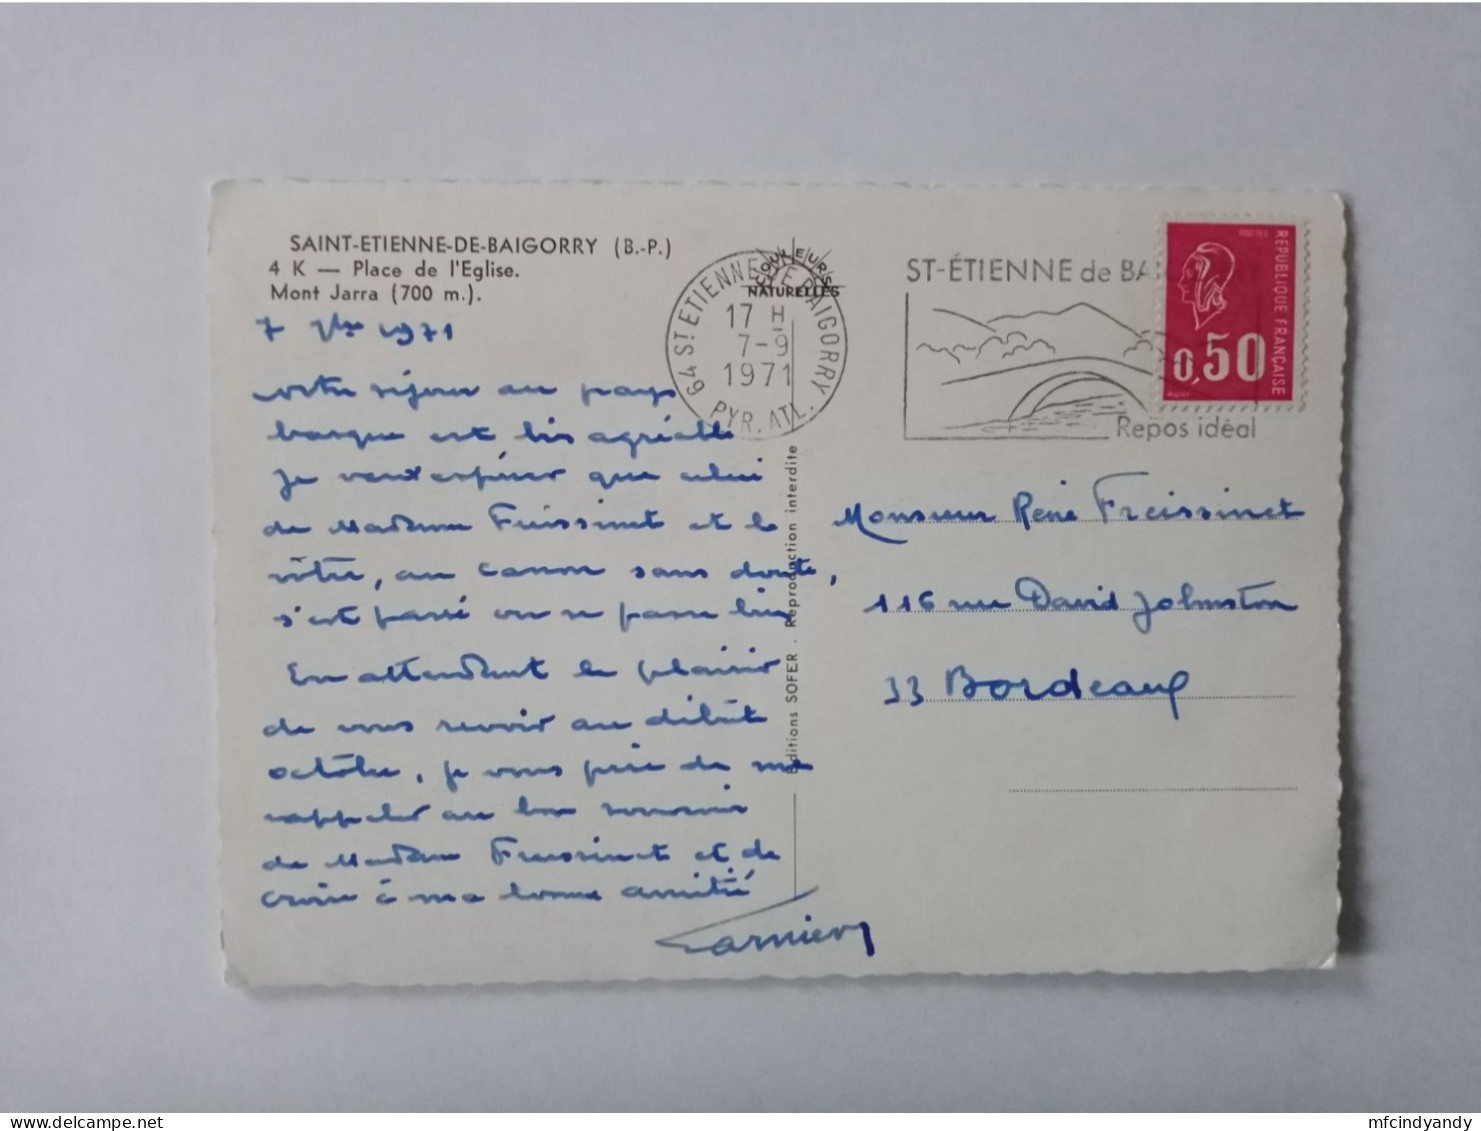 SAINT-ETIENNE-DE-BAIGORRY (B.-P.)
4 K — Place de l'Eglise.
Mont Jarra (700 m.).
7 7bre 1971
votre séjour au pays
basque est très agréable
Je veux espérer que celui
de Madame Freissinet et le
vôtre, au canon sans doute,
s'est passé ou se passe bien
En attendant le plaisir
de vous revoir au début
octobre, je vous prie de me
rappeler au bon souvenir
de Madame Freissinet et de
croire à ma bonne amitié
COULEURS
NATURELLES
64 ST ETIENNE DE BAIGORRY
17 H
7-9
1971
PYR. ATL.
Editions SOFER . Reproduction interdite
ST-ÉTIENNE de
Repos idéal
POSTES
REPUBLIQUE FRANÇAISE
0,50
Monsieur René Freissinet
116 rue David Johnston
33 Bordeaux
mfcindyandy